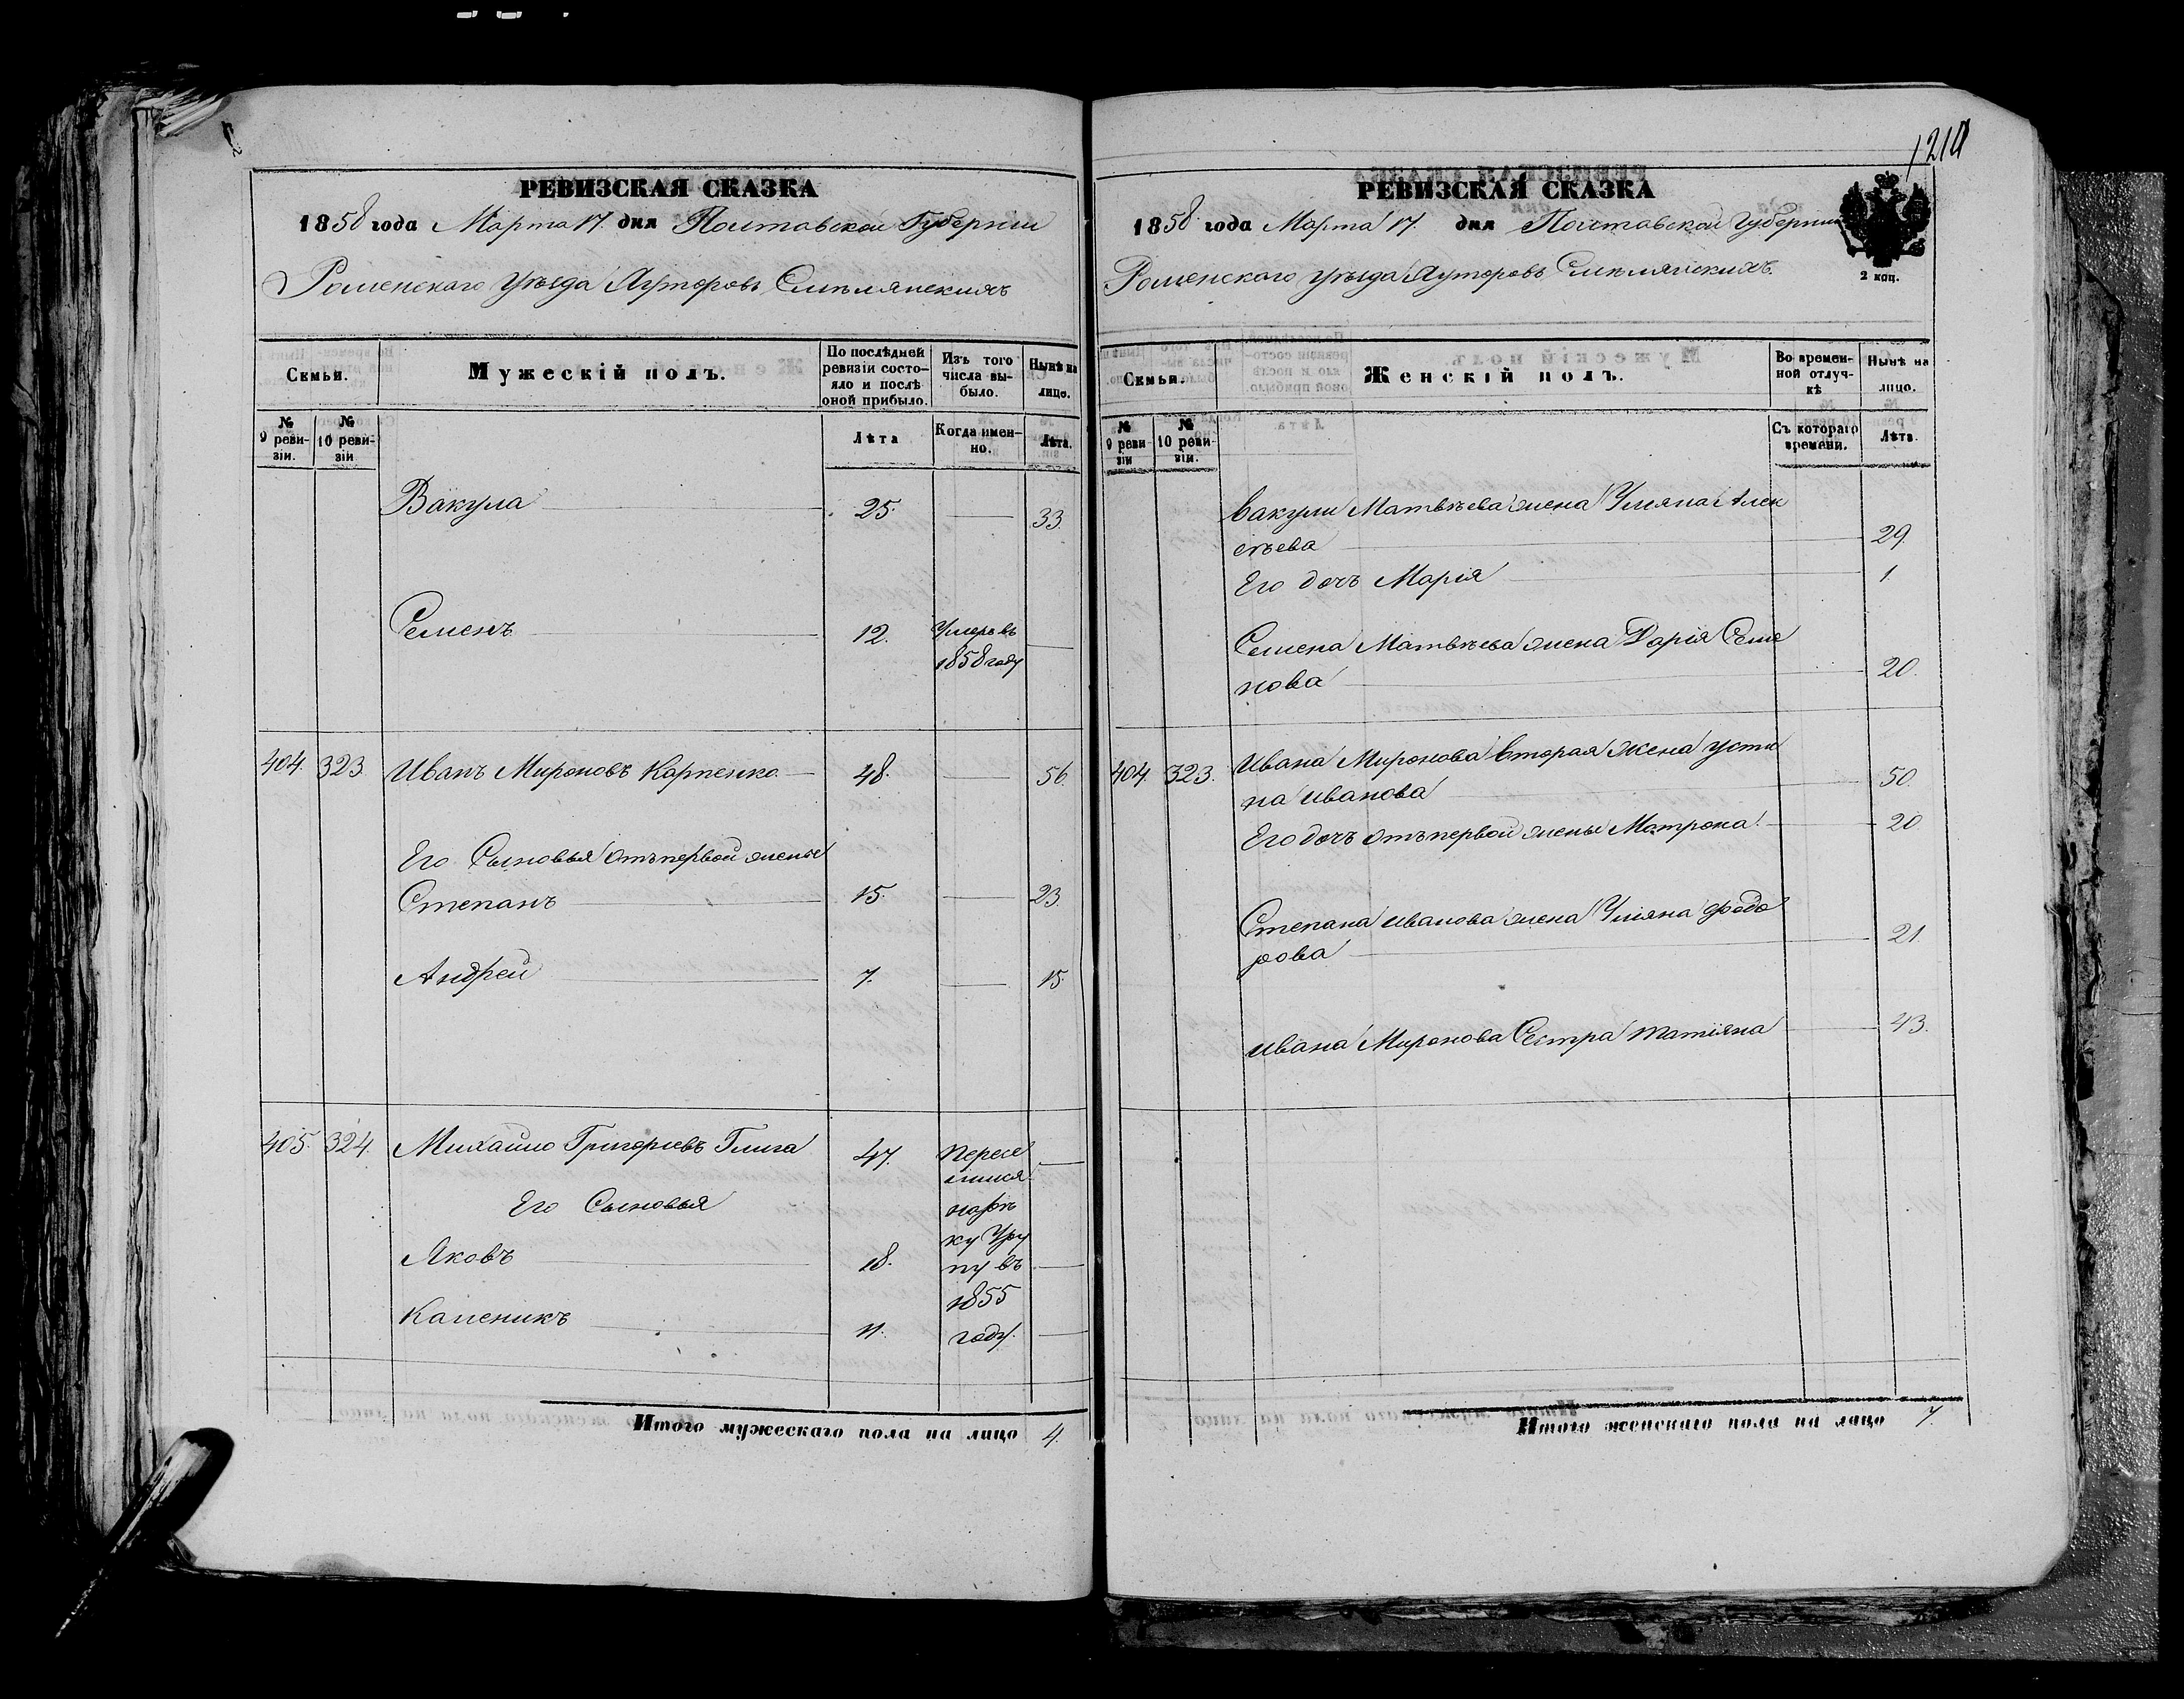 РЕВИЗСКАЯ СКАЗКА
1858 года Марта 17. дня Полтавской Губерніи
Роменскаго Уѣзда Хуторовъ Смѣлянскихъ
Семьи.
Мужескій полъ.
По послѣдней ревизіи состояло и послѣ оной прибыло.
Изъ того числа выбыло.
Нынѣ на лицо.
№ 9 ревизіи.
№ 10 ревизіи
Лѣта
Когда именно.
Лѣта.
Вакула 25. 33.
Семенъ 12. Умеръ въ
1858 году
404. 323. Иванъ Мироновъ Карпенко 48. 56.
Его Сыновья отъ первой жены
Степанъ 15. 23.
Андрей 7. 15.
405. 324. Михайло Григорьевъ Глига 47. пересе
лился
на рѣ
Его Сыновья
ку Уру
Яковъ 18. пу въ
1855
Каленикъ 11. году.
Итого мужескаго пола на лицо 4.
121
РЕВИЗСКАЯ СКАЗКА
1858 года Марта 17. дня Полтавской Губерніи
2 коп.
Роменскаго Уѣзда Хуторовъ Смѣлянскихъ.
Семьи.
Женскій полъ.
Во временной отлучкѣ
Нынѣ на лицо.
№ 9 ревизіи
№ 10 ревизіи.
Съ котораго времени.
Лѣта.
Вакулы Матвѣева жена Уляна Алек
сѣева 29.
Его дочь Марія 1.
Семена Матвѣева жена Дарія Семе
нова 20.
404 323. Ивана Миронова вторая жена Усти
на Иванова 50.
Его дочь отъ первой жены Матрона. 20
Степана Иванова жена Уляна Федо
рова 21.
Ивана Миронова Сестра Татіяна 43.
Итого женскаго пола на лицо 7